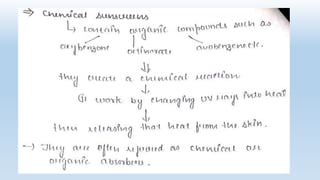 ⇒ Chemical sunscreens
↳ contain organic compounds such as
oxybenzone octinoxate avobenzone etc.
⇓
they create a chemical reaction
↓
① work by changing UV rays into heat
↓
then releasing that heat from the skin.
→ They are often referred as chemical or
organic absorbers.